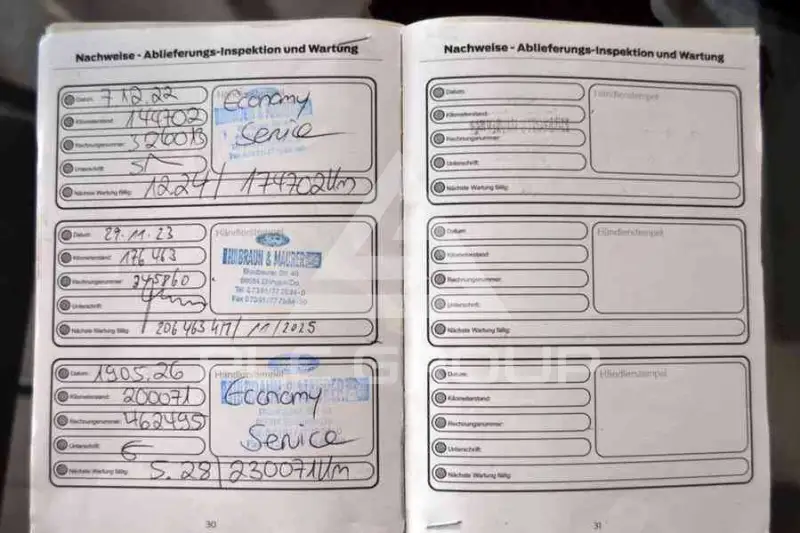 Nachweise - Ablieferungs-Inspektion und Wartung
Datum: 7.12.22
Kilometerstand: 144702
Rechnungsnummer:
Unterschrift:
Nächste Wartung fällig: 12.24 / 174702 Km
Händlerstempel
Economy
Service
Datum: 29.11.23
Kilometerstand: 176463
Rechnungsnummer: 245860
Unterschrift:
Nächste Wartung fällig: 206463 KM / 11/2025
Händlerstempel
Ford
HILBRAUN & MAURER
Datum: 19.05.26
Kilometerstand: 200071
Rechnungsnummer: 462495
Unterschrift:
Nächste Wartung fällig: 5.28 / 230071 Km
Händlerstempel
Economy
Service
30
Nachweise - Ablieferungs-Inspektion und Wartung
Datum:
Kilometerstand:
Rechnungsnummer:
Unterschrift:
Nächste Wartung fällig:
Händlerstempel
Datum:
Kilometerstand:
Rechnungsnummer:
Unterschrift:
Nächste Wartung fällig:
Händlerstempel
Datum:
Kilometerstand:
Rechnungsnummer:
Unterschrift:
Nächste Wartung fällig:
Händlerstempel
31
GROUP